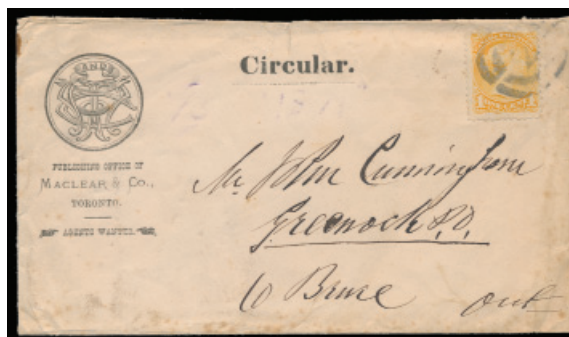 Circular.
PUBLISHING OFFICE OF
MACLEAR & CO.,
TORONTO.
AGENTS WANTED.
Mr John Cunningham
Greenock P.O.
Co Bruce Ont